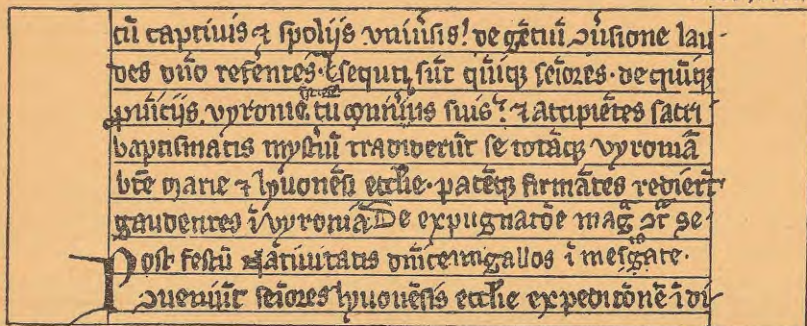 cū captiuis ⁊ spolijs vniu̅sis! de gētiū ꝯu̅sione lau
des dn̅o refe̅ntes. ⁊ sequti sūt qūiq; se̅iores. de qūiq;
p̅uīcijs vyronie. cū mun̅i̅is suis. ⁊ accipiētes sacri
baptismatis myst̅iū tradiderūt se totāq; vyroniā
bt̅e marie ⁊ lyuonēsi eccl̅ie. pacēq; firmātes redier̅t
gaudentes ī vyroniā De expugnatōe
Post festū Natiuitatis dn̅i
ꝯueniūt se̅iores lyuonēsis eccl̅ie expeditōnē ī di